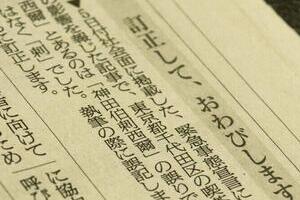 訂正して、おわびします
緊急事態宣言に
日付社会面に掲載した、東京都千代田区の喫
影響を報じた記事で、「神田伯剌西爾」の誤りで
西爾」とあるのは、
執筆の際に誤記しま
はなく「刺」でした。
訂正します。
者に向けて
ため
に協
呼び